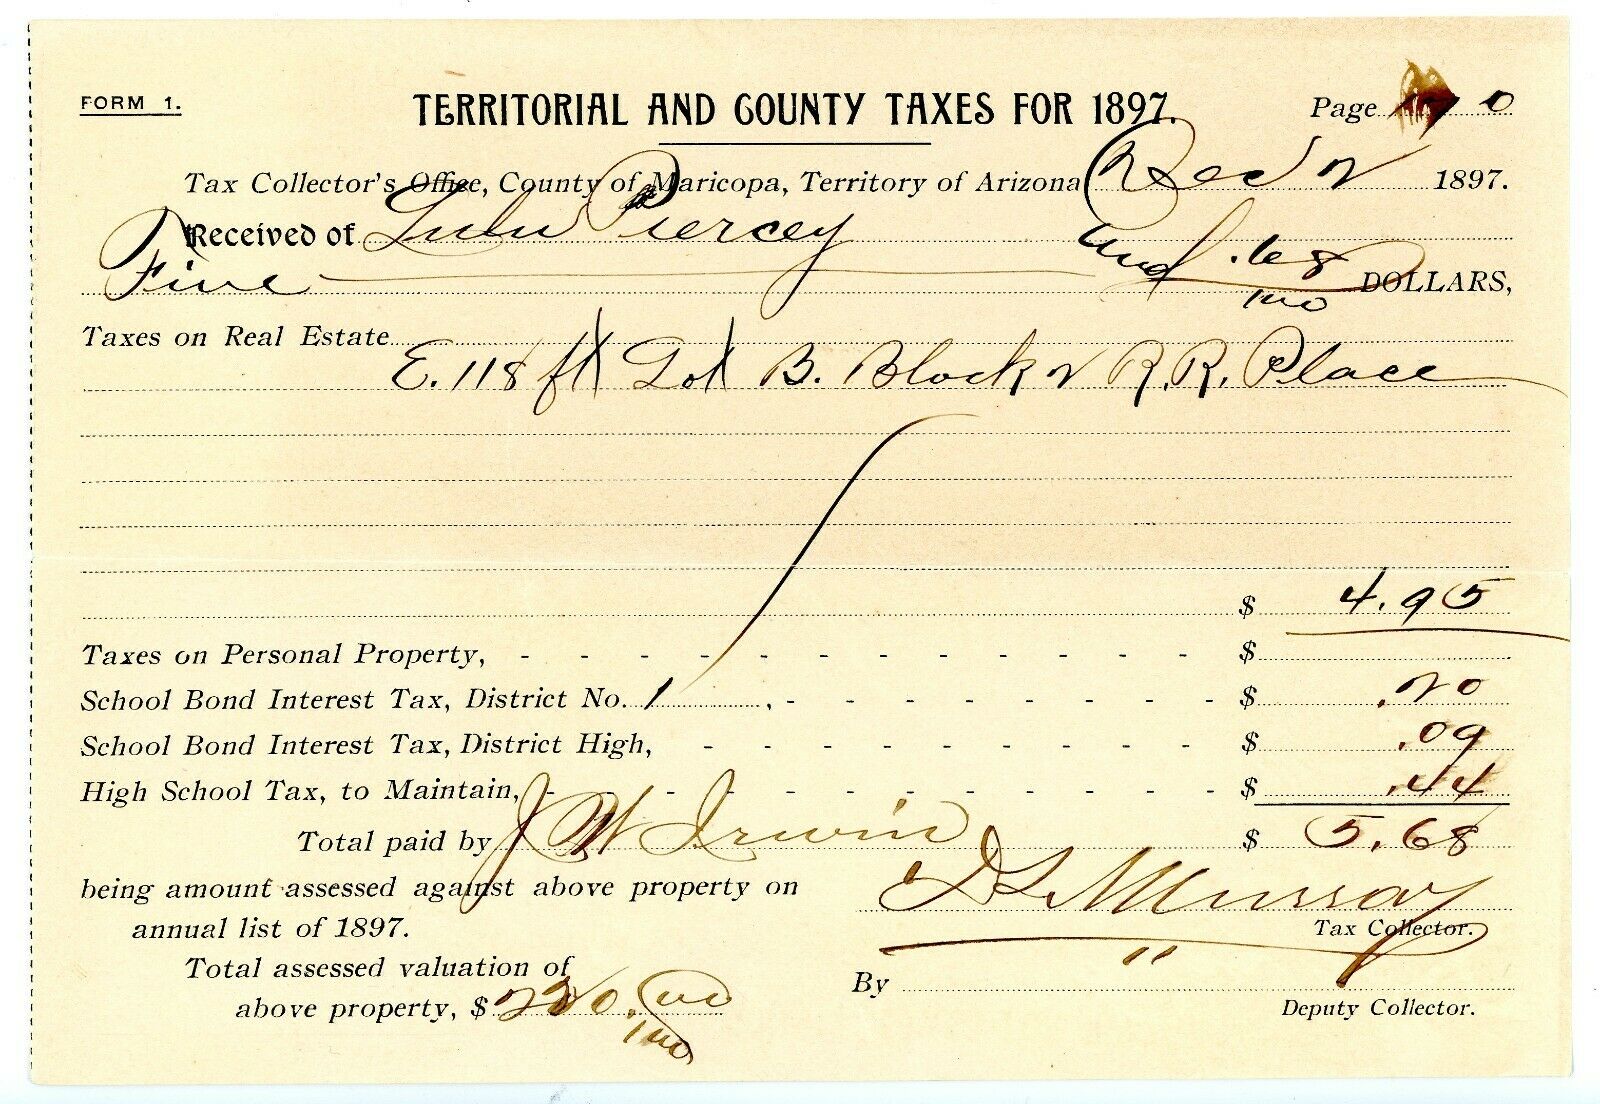 FORM 1. TERRITORIAL AND COUNTY TAXES FOR 1897. Page 0
Tax Collector's Office, County of Maricopa, Territory of Arizona Dec 2 1897.
Received of Lulu Piercey
Five and .68/100 DOLLARS,
Taxes on Real Estate
E. 118 ft Lot B. Block 2 R.R. Place
$ 4.95
Taxes on Personal Property, - - - - - - - - - - - - $
School Bond Interest Tax, District No. 1 , - - - - - - - - $ .20
School Bond Interest Tax, District High, - - - - - - - - - $ .09
High School Tax, to Maintain, - - - - - - - - - - - - $ .44
Total paid by J W Irwin $ 5.68
being amount assessed against above property on
annual list of 1897.
D L Murray
Tax Collector.
Total assessed valuation of
above property, $ 220.00/100
By "
Deputy Collector.